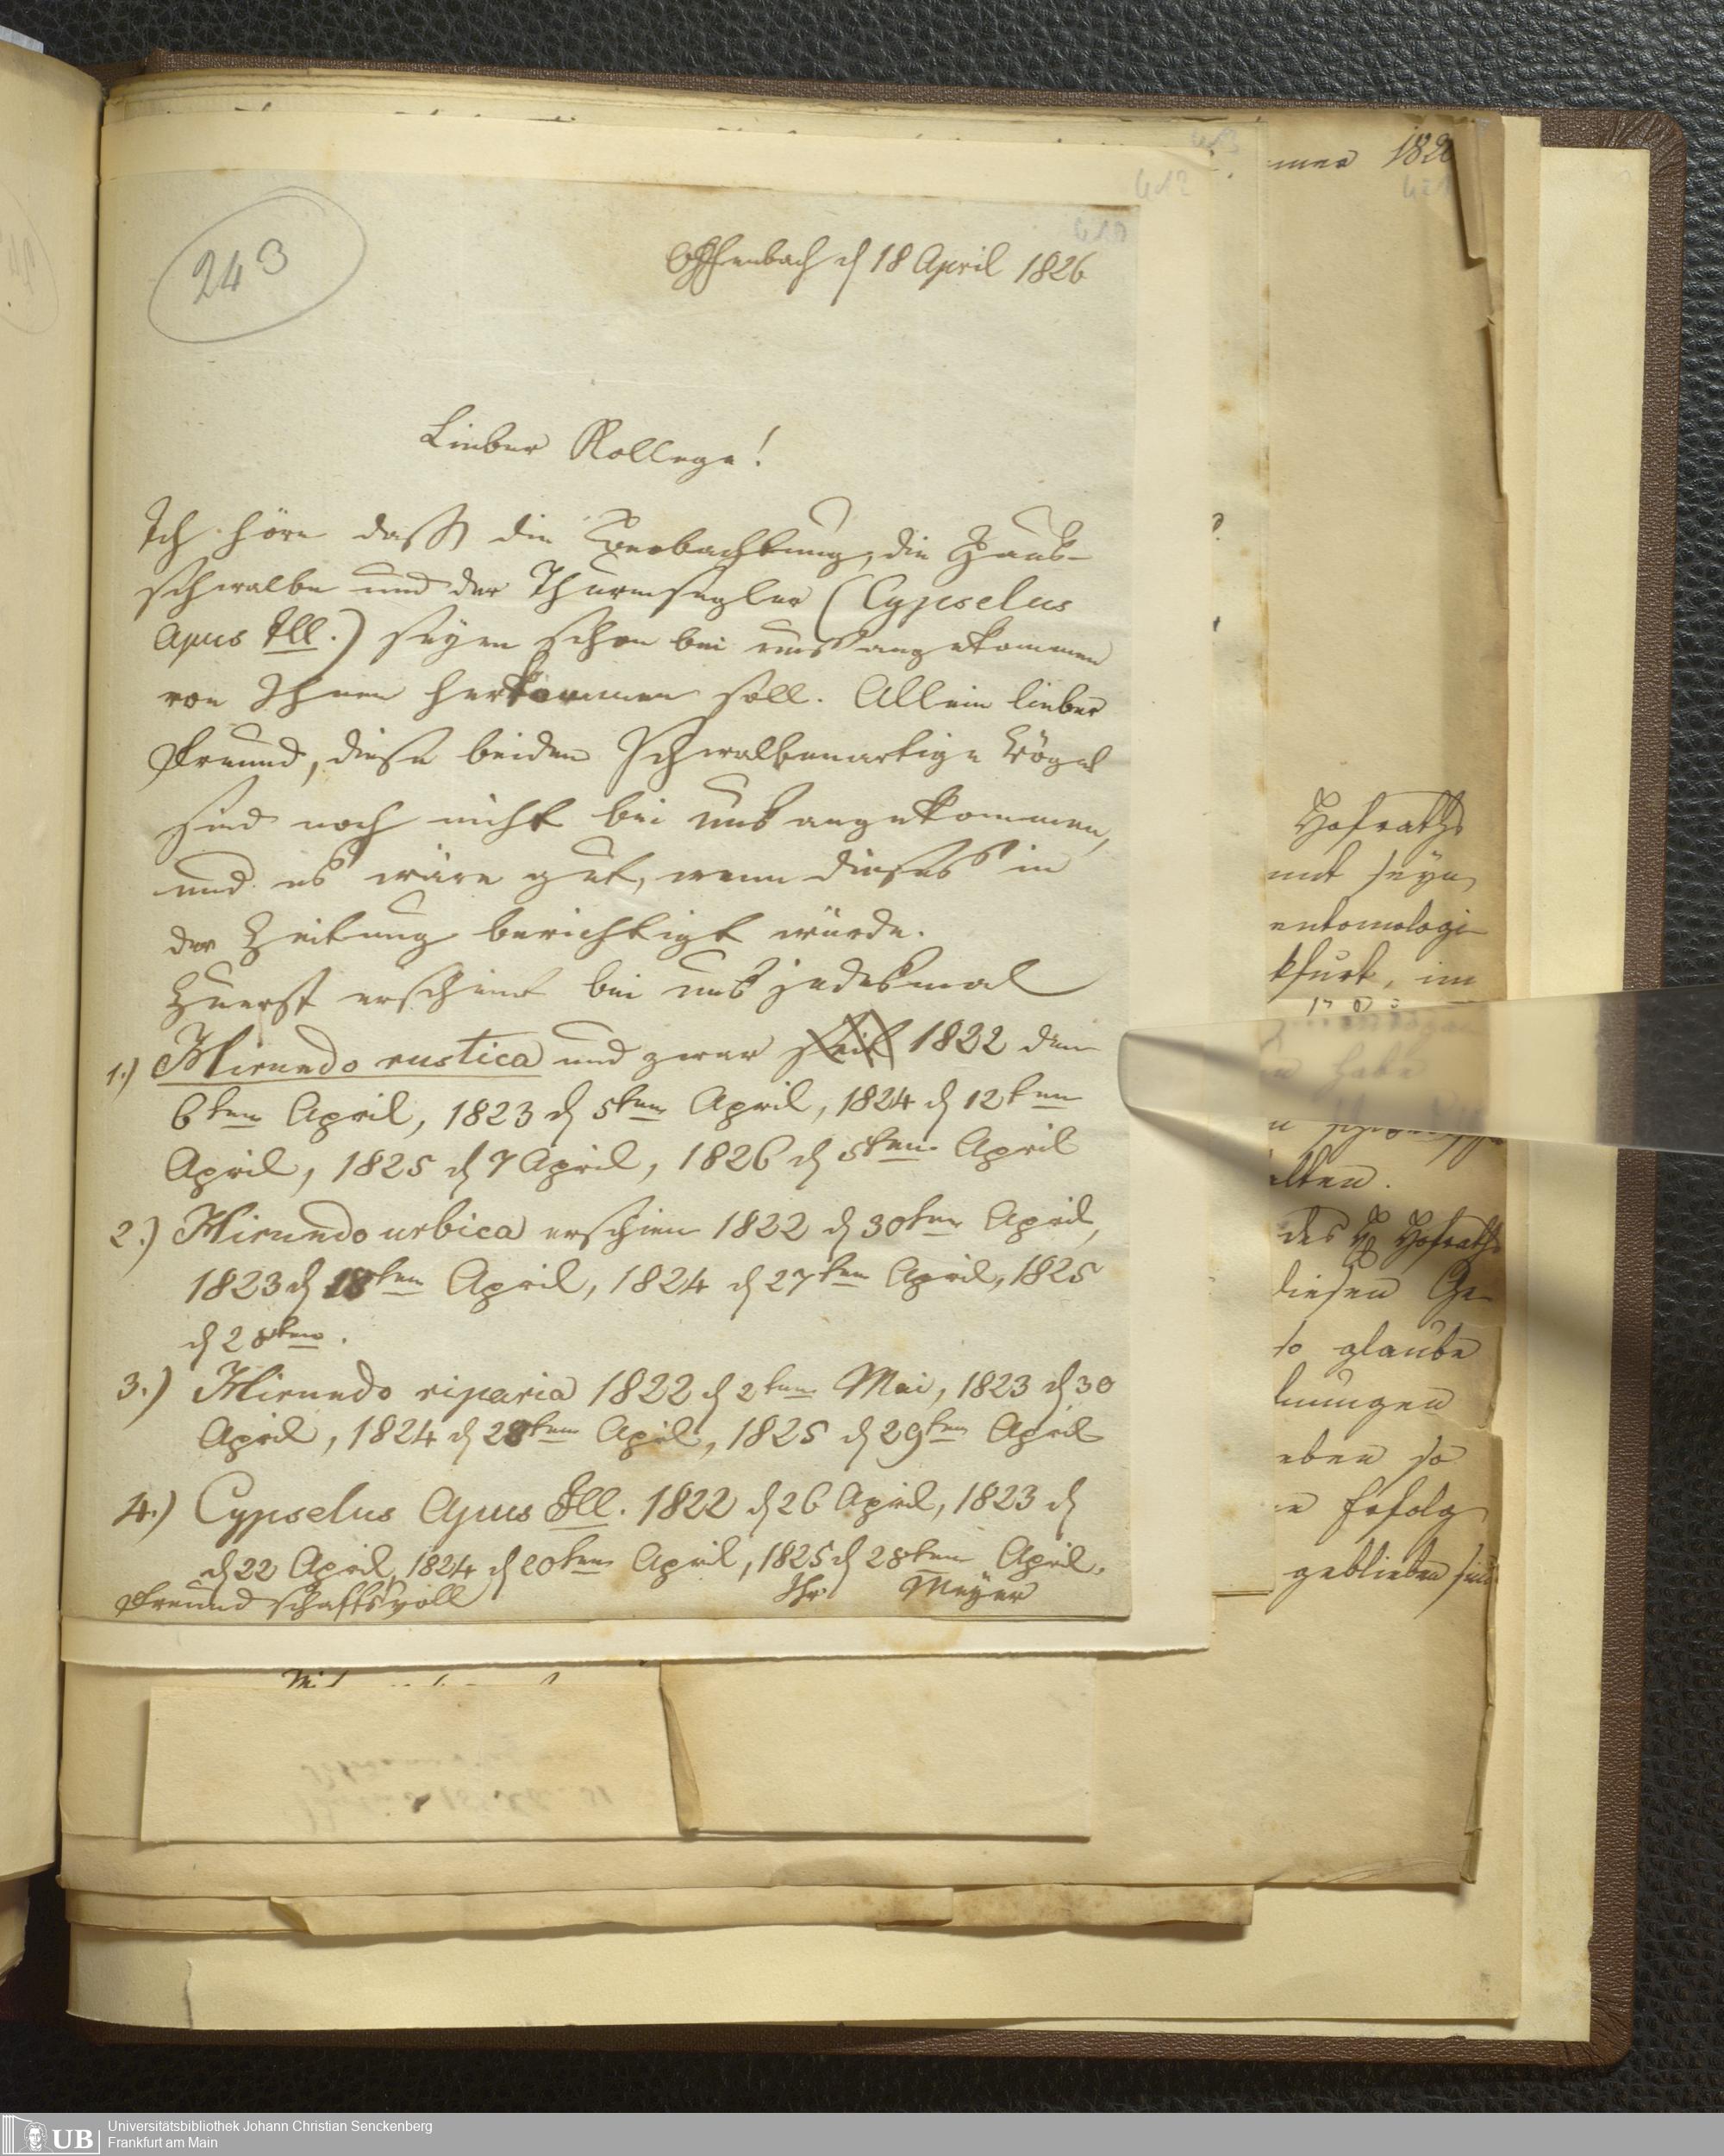 243
Offenbach d 18 April 1826
Lieber Kollege!
Ich höre daß die Beobachtung, die Haus-
schwalbe und der Thurmsegler (Cypselus
Apus Ill.) seyen schon bei uns angekommen
von Ihnen herkommen soll. Allein lieber
Freund, diese beiden Schwalbenartige Vögel
sind noch nicht bei uns angekommen,
und es wäre gut, wenn dieses in
der Zeitung berichtigt würde.
Zuerst erscheint bei uns jedesmal
1.) Hirundo rustica und zwar seit 1822 den
6ten April, 1823 d 5ten April, 1824 d 12ten
April, 1825 d 7 April, 1826 d 5ten April
2.) Hirundo urbica erschien 1822 d 30ten April,
1823 d 18ten April, 1824 d 27ten April, 1825
d 28ten.
3.) Hirundo riparia 1822 d 2ten Mai, 1823 d 30
April, 1824 d 28ten April, 1825 d 29ten April
4.) Cypselus Apus Ill. 1822 d 26 April, 1823 d
d 22 April, 1824 d 20ten April, 1825 d 28ten April.
Freundschaftsvoll Ihr Meyer
1826
Hofraths
seyn
entomologi
kfurt, im
habe
alten.
des H Hofraths
diesen Ge-
so glaube
eben so
Erfolg
geblieben sind
UB
Universitätsbibliothek Johann Christian Senckenberg
Frankfurt am Main